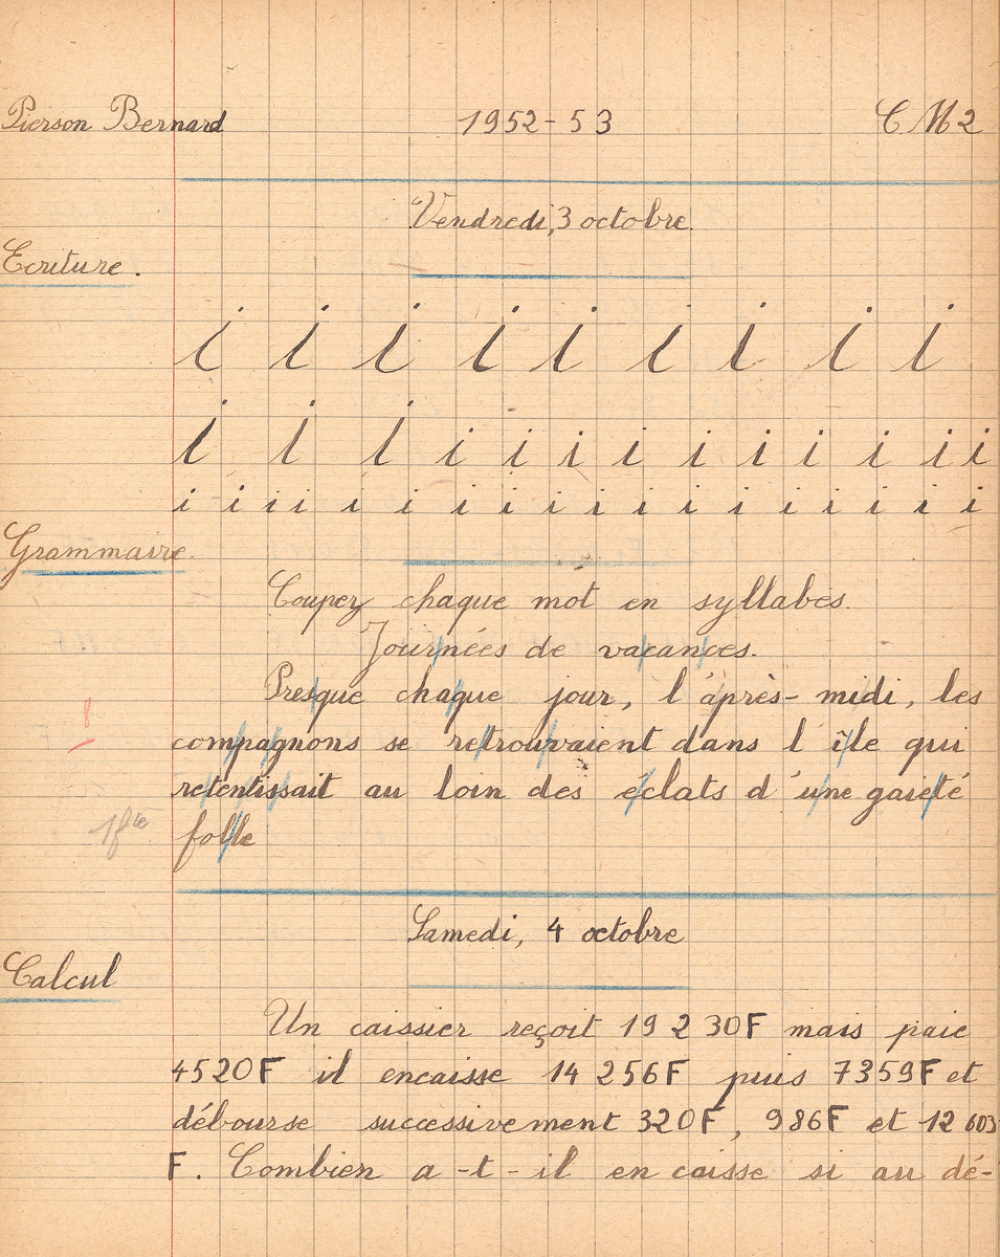 Pierson Bernard 1952-53 CM2
Vendredi, 3 octobre.
Ecriture.
i i i i i i i i i
i i i i i i i i i i i i i
i i i i i i i i i i i i i i i i i i
Grammaire.
Coupez chaque mot en syllabes.
Journées de vacances.
Presque chaque jour, l'après-midi, les
8
compagnons se retrouvaient dans l'île qui
retentissait au loin des éclats d'une gaieté
folle
Samedi, 4 octobre
Calcul
Un caissier reçoit 19 230F mais paie
4520F il encaisse 14 256F puis 7359F et
débourse successivement 320F, 986F et 12 603
F. Combien a-t-il en caisse si au dé-